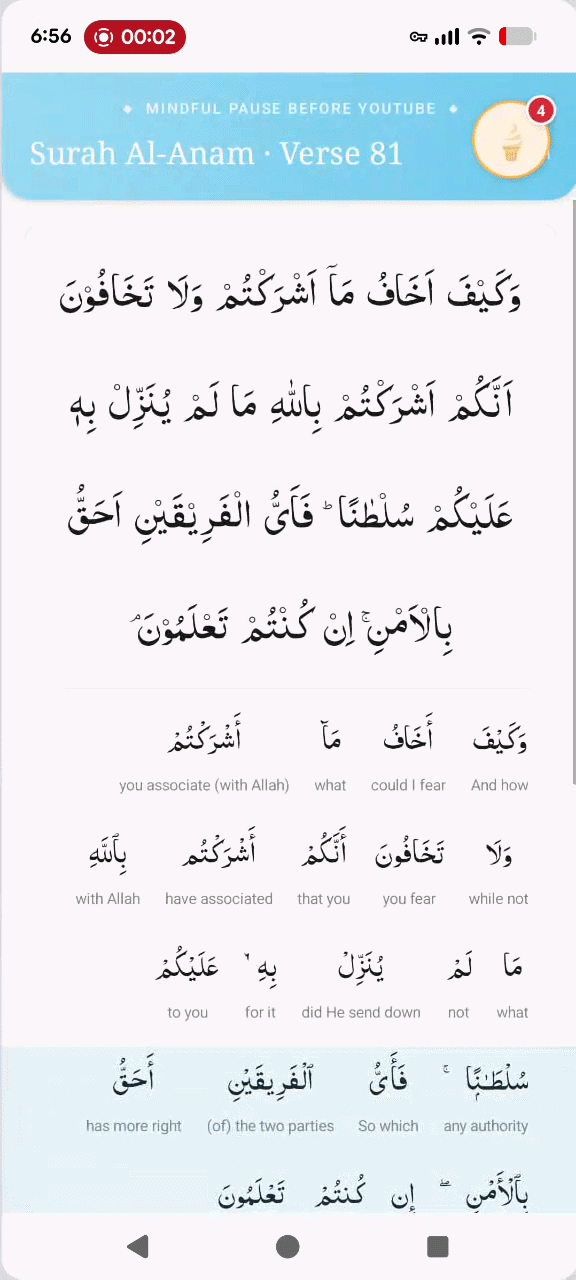 6:56 00:02
MINDFUL PAUSE BEFORE YOUTUBE
4
Surah Al-Anam · Verse 81
وَكَيْفَ اَخَافُ مَآ اَشْرَكْتُمْ وَلَا تَخَافُوْنَ
اَنَّكُمْ اَشْرَكْتُمْ بِاللّٰهِ مَا لَمْ يُنَزِّلْ بِهٖ
عَلَيْكُمْ سُلْطٰنًا ؕ فَاَىُّ الْفَرِيْقَيْنِ اَحَقُّ
بِالْاَمْنِ ۚ اِنْ كُنْتُمْ تَعْلَمُوْنَ ۘ
وَكَيْفَ أَخَافُ مَآ أَشْرَكْتُمْ
And how could I fear what you associate (with Allah)
وَلَا تَخَافُونَ أَنَّكُمْ أَشْرَكْتُم بِٱللَّهِ
while not you fear that you have associated with Allah
مَا لَمْ يُنَزِّلْ بِهِۦ عَلَيْكُمْ
what not did He send down for it to you
سُلْطَـٰنًۭا ۚ فَأَىُّ ٱلْفَرِيقَيْنِ أَحَقُّ
any authority So which (of) the two parties has more right
بِٱلْأَمْنِ ۖ إِن كُنتُمْ تَعْلَمُونَ